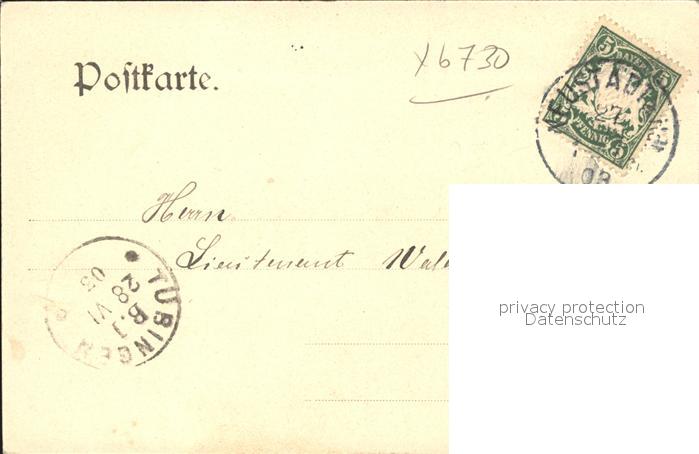 Postkarte.
x6730
5 BAYERN 5
NEUSTADT
27
5 PFENNIG 5
03
Herrn
Lieutenant Wald
TÜBINGEN
B.J.
28 VI
03
privacy protection
Datenschutz